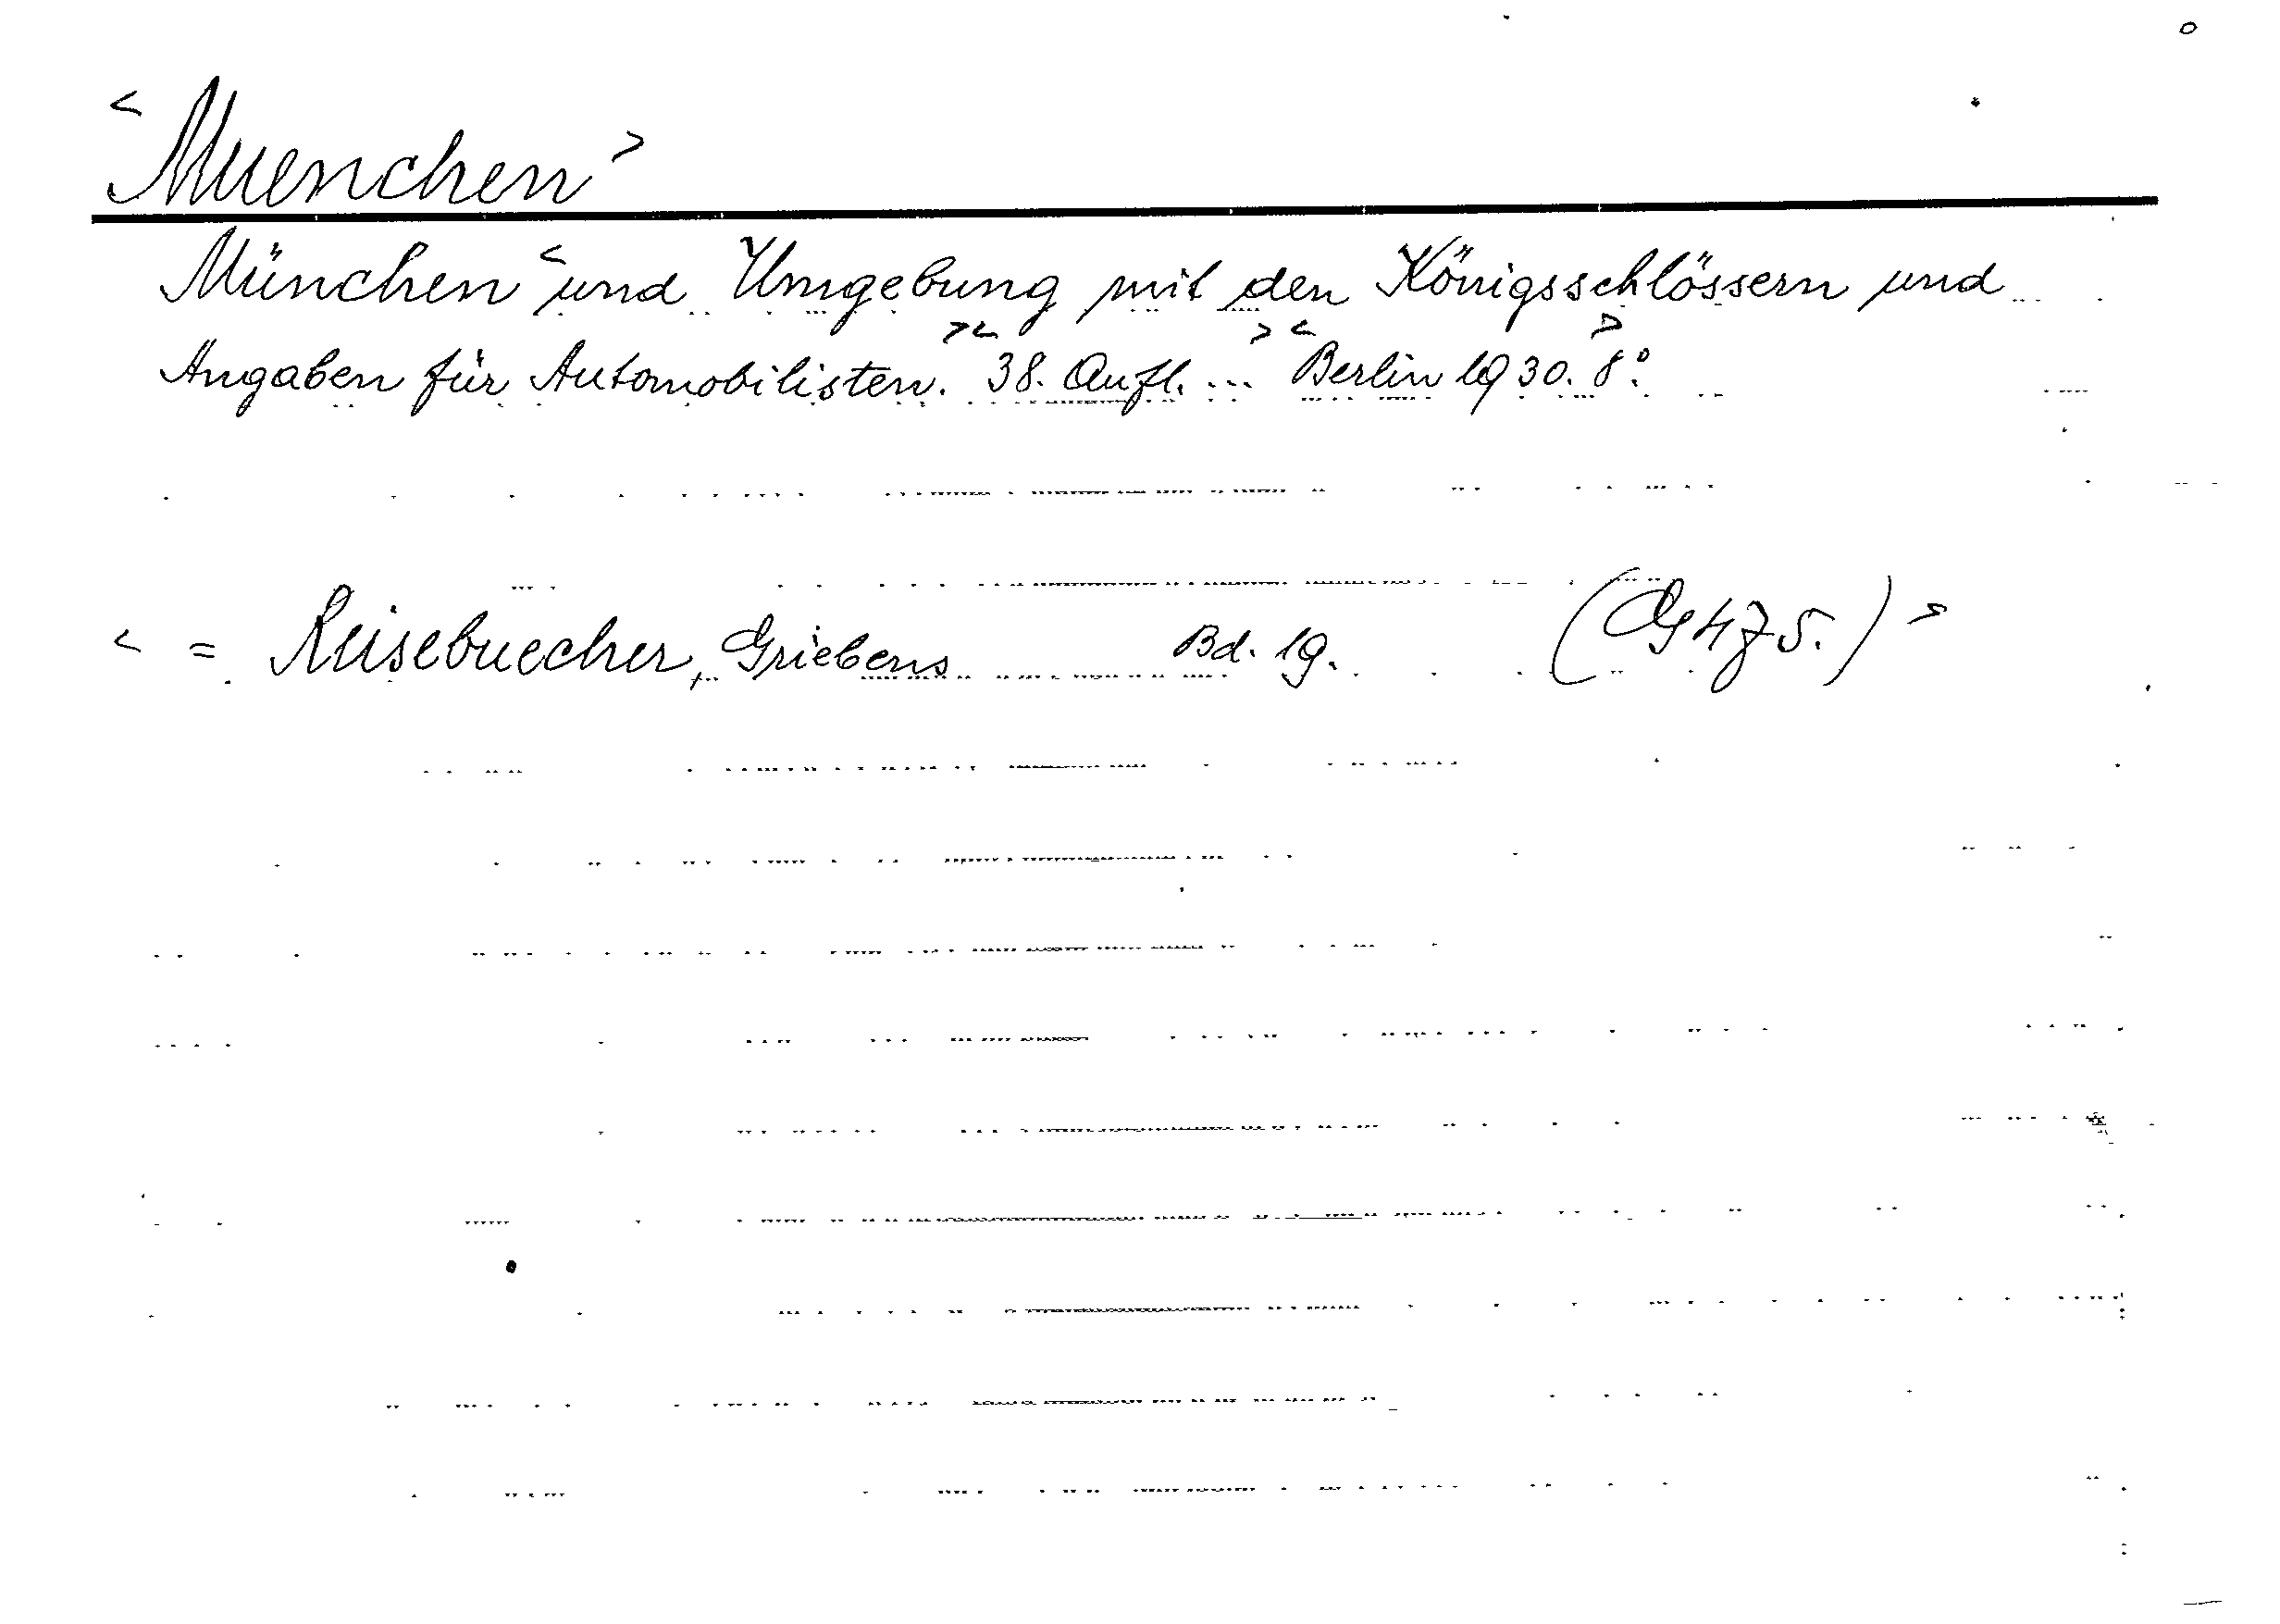 <Muenchen>
München <und Umgebung mit den Königsschlössern und
Angaben für Automobilisten.> <38. Aufl. ...> <Berlin 1930. 8°.>
< = Reisebuecher, Griebens Bd. 19. (Og 475.) >